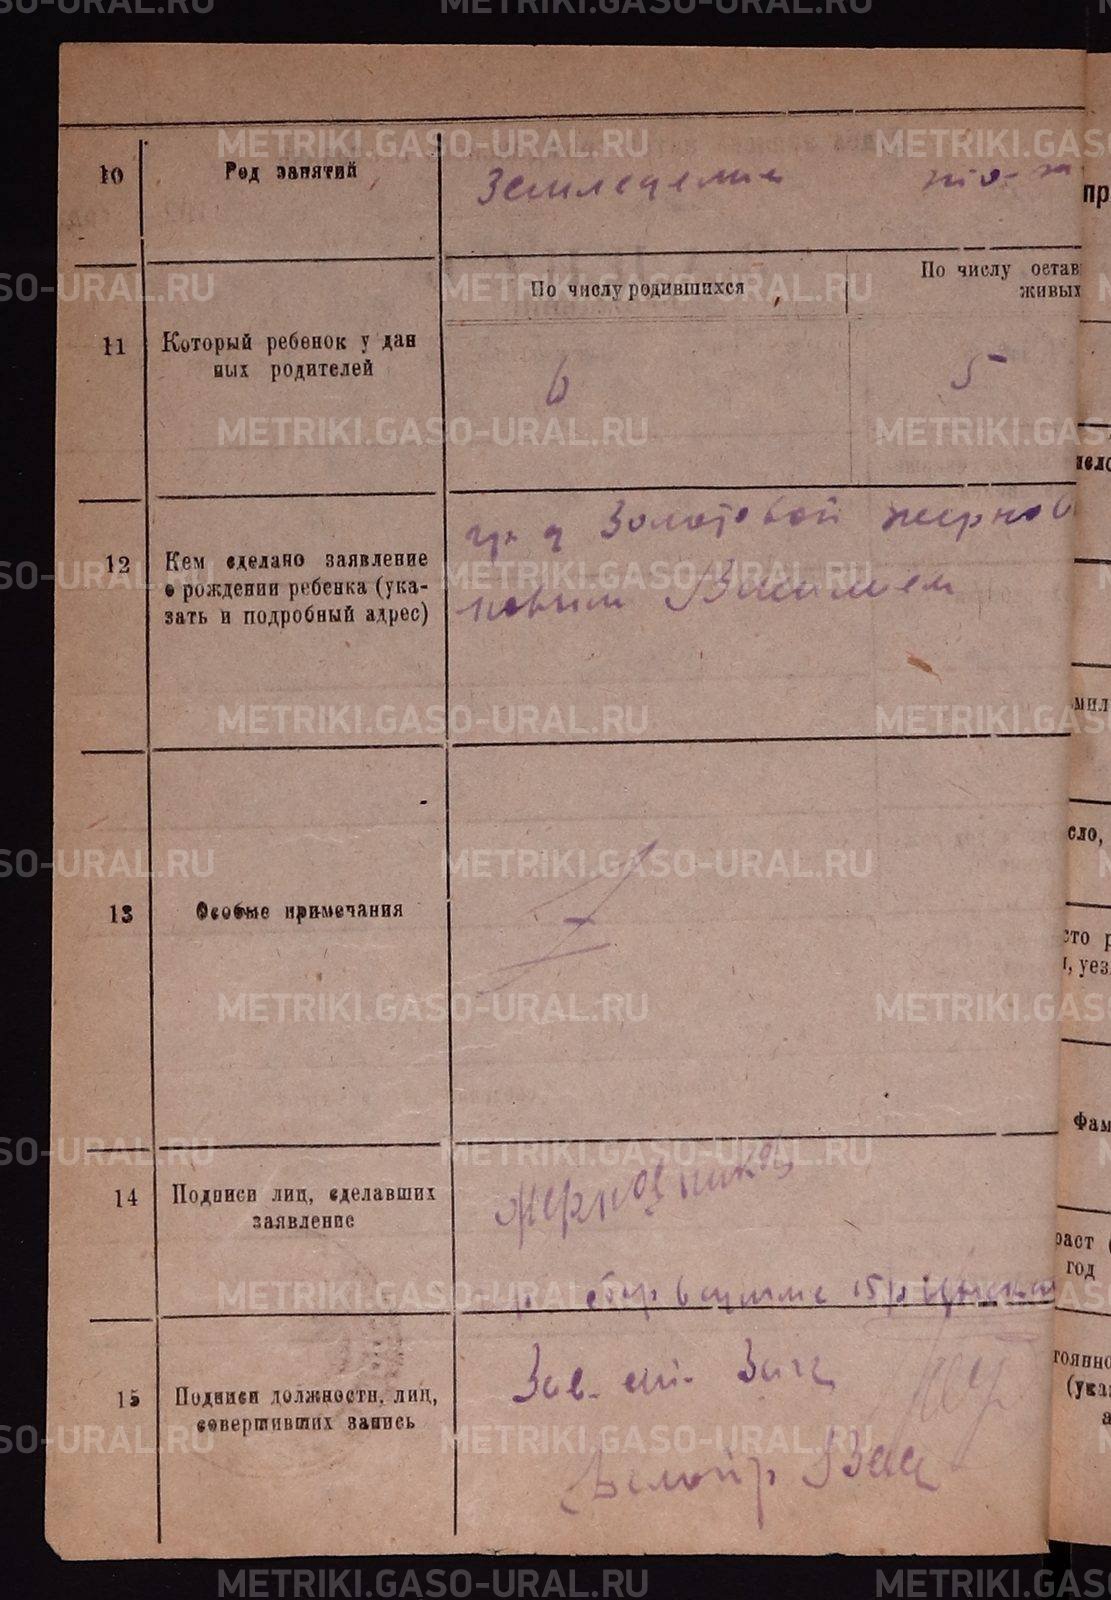 10 Род занятий Земледелие то-же
По числу родившихся По числу остав
живых
11 Который ребенок у дан
ных родителей 6 5
12 Кем сделано заявление
о рождении ребенка (ука-
зать и подробный адрес)
гр. д Золотовой Жернов
новым Василием
13 Особые примечания
14 Подписи лиц, сделавших
заявление
Жерновников
сбор в сумме 15 р
15 Подписи должностн. лиц,
совершивших запись
Зав.
пр
мил
сло,
сто р
, уез
Фам
раст
год
тоянно
(ука
а
METRIKI.GASO-URAL.RU